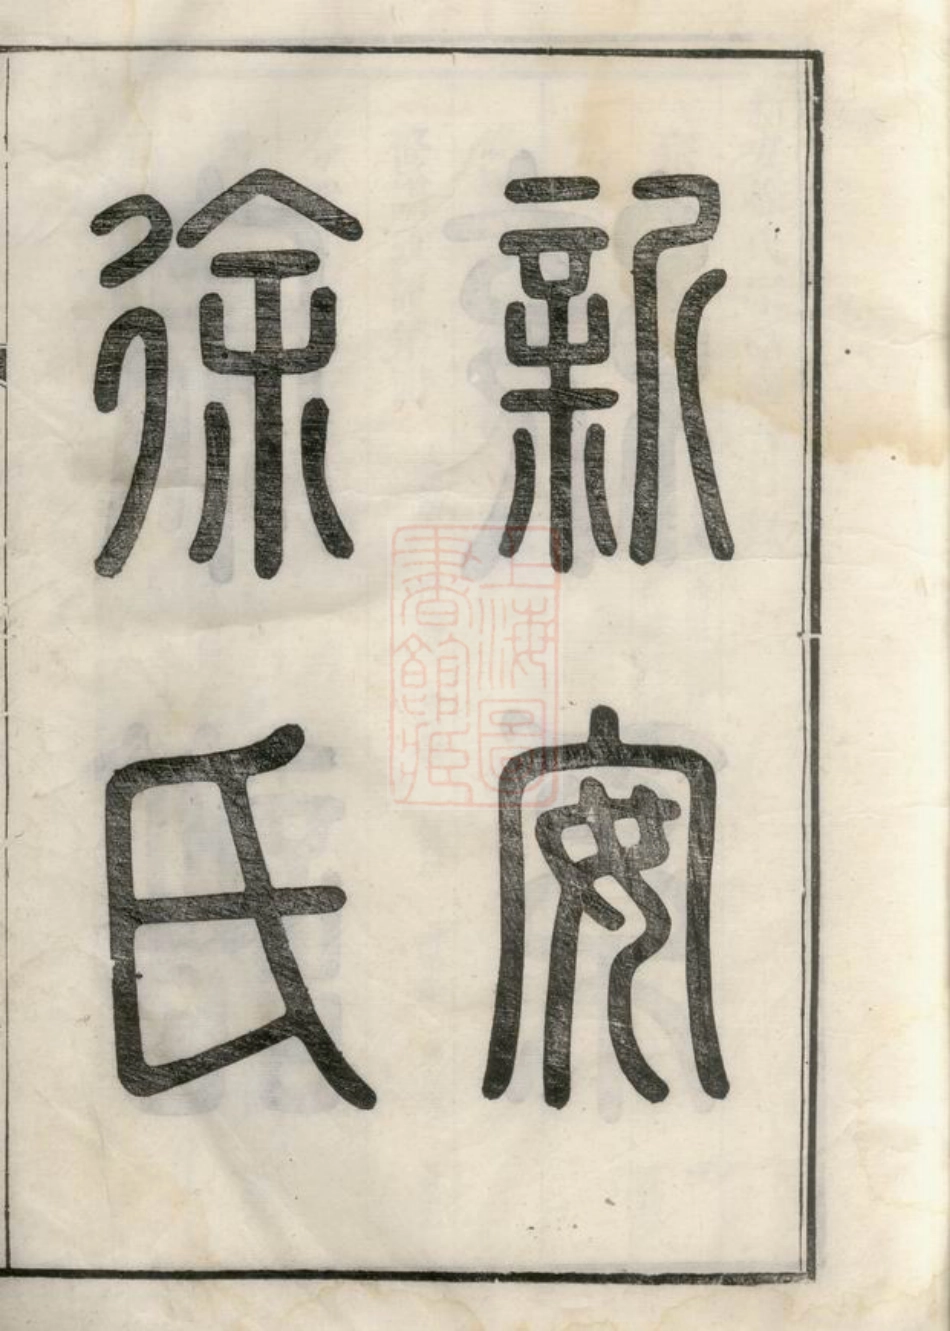 新安
徐氏
上海圖
書館藏